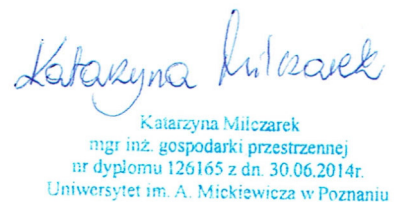 Katarzyna Milczarek
Katarzyna Milczarek
mgr inż. gospodarki przestrzennej
nr dyplomu 126165 z dn. 30.06.2014r.
Uniwersytet im. A. Mickiewicza w Poznaniu